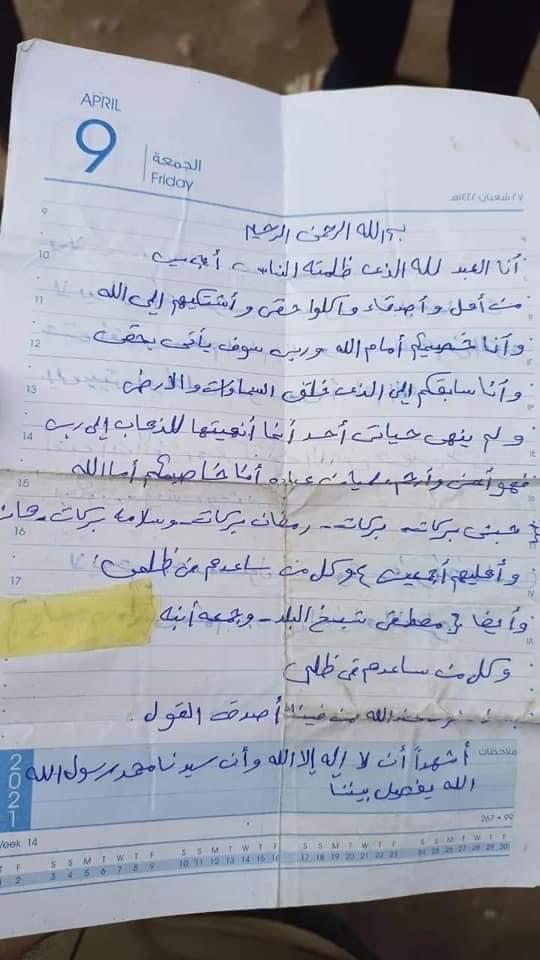 APRIL
9
الجمعة
Friday
٢٧ شعبان ١٤٤٢هـ
بسم الله الرحمن الرحيم
أنا العبد لله الذى ظلمته الناس أجمعين
من أهل وأصدقاء وأكلوا حقى وأشتكيهم إلى الله
وأنا خصيمكم أمام الله وربى سوف يأتى بحقى
وأنا سابقكم إلى الذى خلق السماوات والأرض
ولم ينهى حياتى أحد أنما أنهيتها للذهاب إلى ربى
فهو أحن وأرحم من عباده أنا خاصيمكم أمام الله
حبنى بركات - بركات - رمضان بركات - وسلامه بركات
وأهليهم أجمعين وكل من ساعدهم فى ظلمى
وأيضا مصطفى شيخ البلد - وجمعه أبنه
وكل من ساعدهم فى ظلمى
أصدق القول .
ملاحظات
أشهداً أن لا إله إلا الله وأن سيدنا محمد رسول الله
الله يفصل بيننا
2021
267 • 99
Week 14
T F S S M T W T F S S M T W T F S S M T W T F S S M T W T F
1 2 3 4 5 6 7 8 9 10 11 12 13 14 15 16 17 18 19 20 21 22 23 24 25 26 27 28 29 30